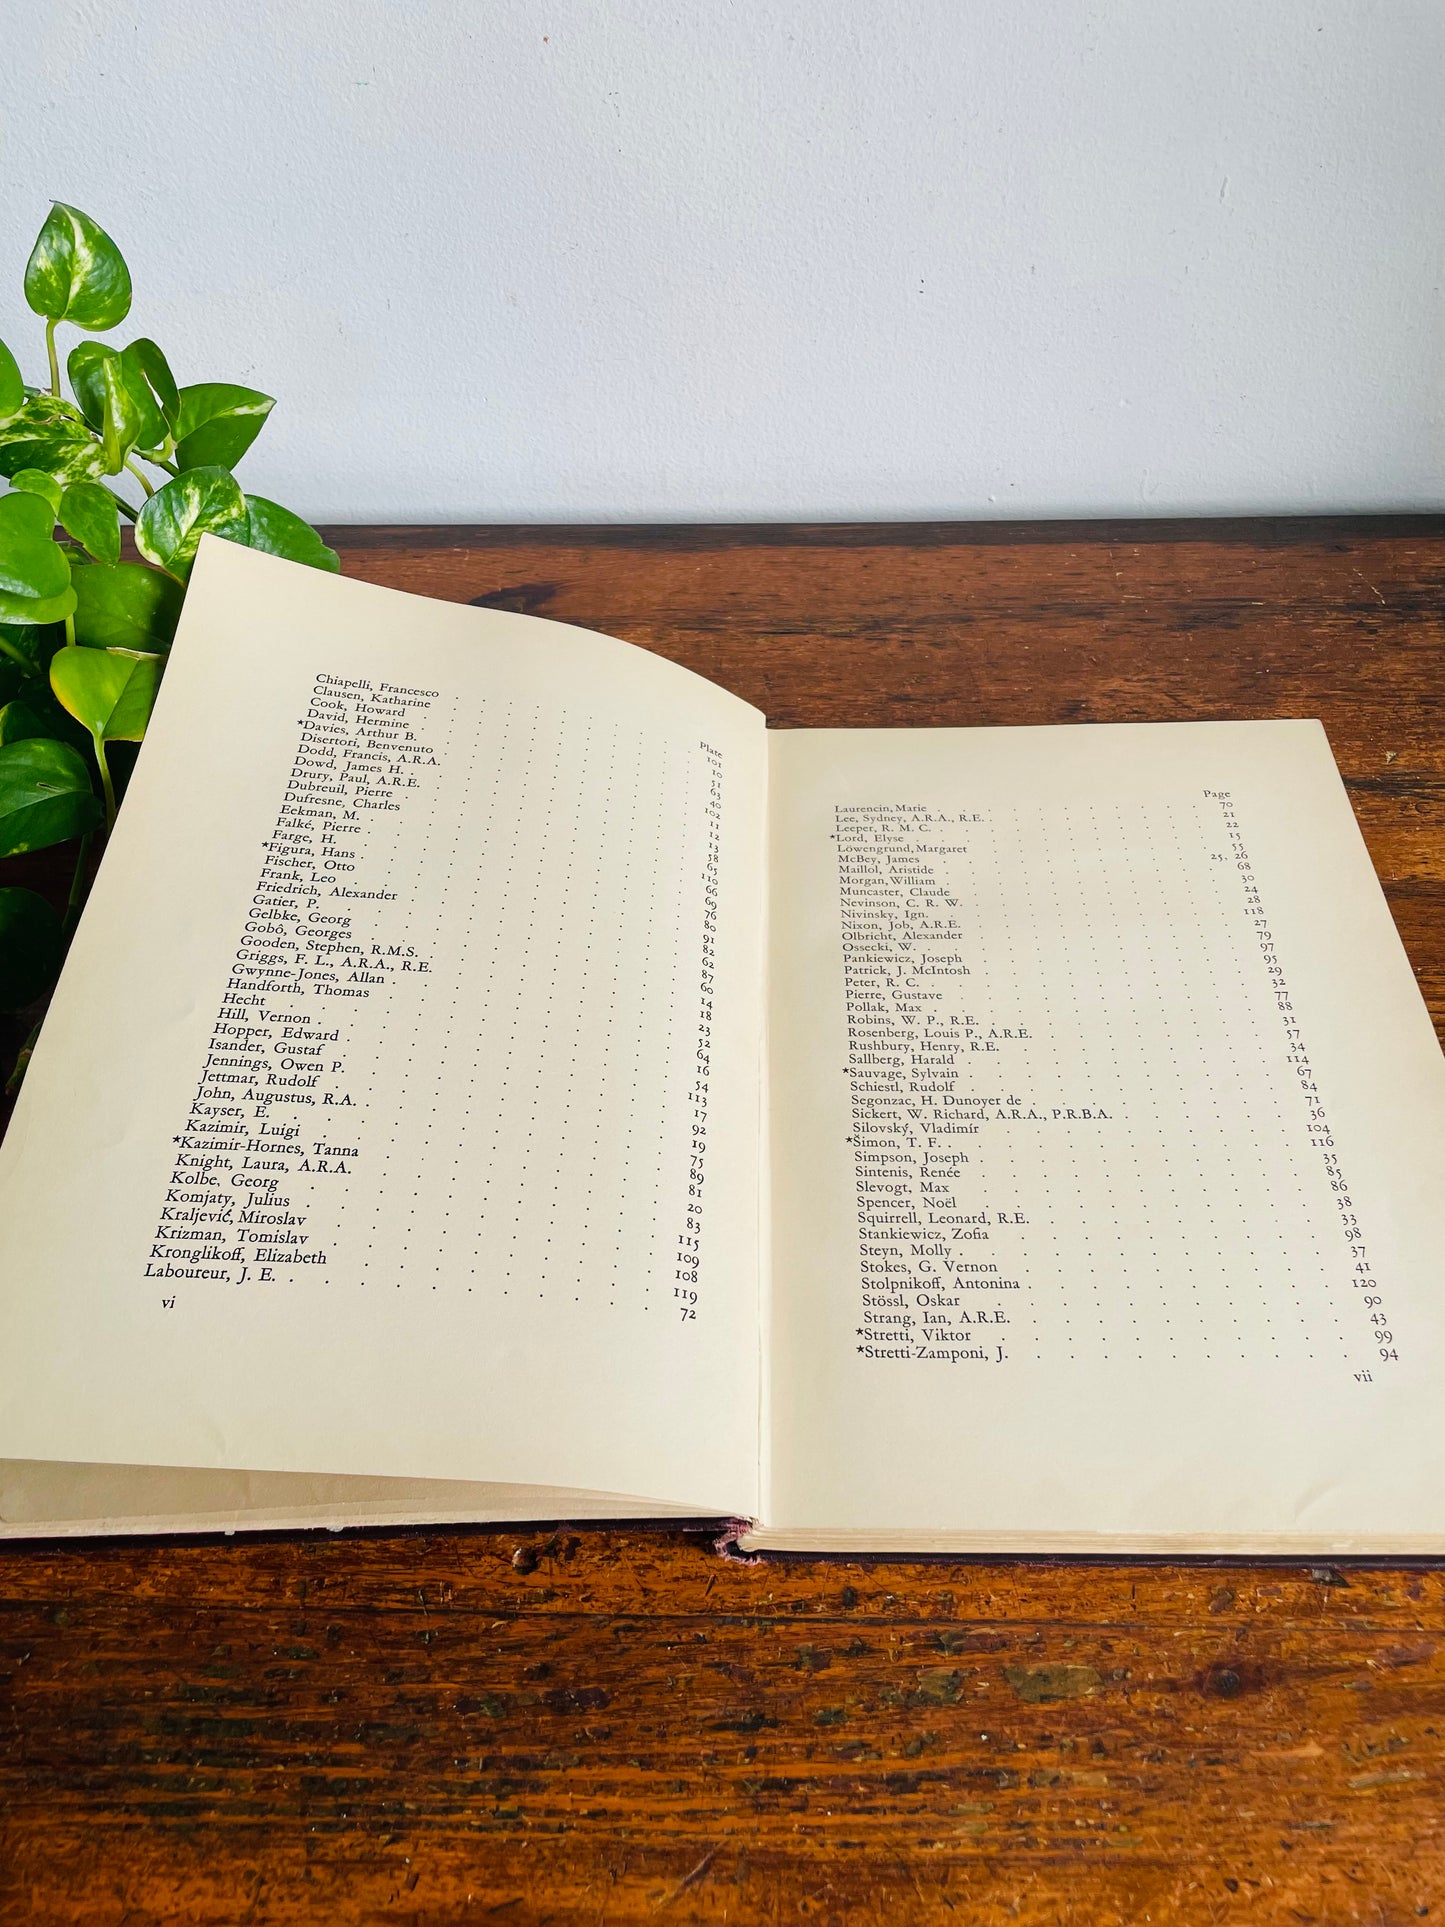 Plate
Chiapelli, Francesco . . . . . . . . 101
Clausen, Katharine . . . . . . . . 10
Cook, Howard . . . . . . . . 51
David, Hermine . . . . . . . . 63
*Davies, Arthur B. . . . . . . . . 40
Disertori, Benvenuto . . . . . . . . 102
Dodd, Francis, A.R.A. . . . . . . . . 11
Dowd, James H. . . . . . . . . 12
Drury, Paul, A.R.E. . . . . . . . . 13
Dubreuil, Pierre . . . . . . . . 58
Dufresne, Charles . . . . . . . . 65
Eekman, M. . . . . . . . . 110
Falké, Pierre . . . . . . . . 66
Farge, H. . . . . . . . . 69
*Figura, Hans . . . . . . . . 76
Fischer, Otto . . . . . . . . 80
Frank, Leo . . . . . . . . 91
Friedrich, Alexander . . . . . . . . 82
Gatier, P. . . . . . . . . 62
Gelbke, Georg . . . . . . . . 87
Gobô, Georges . . . . . . . . 60
Gooden, Stephen, R.M.S. . . . . . . . . 14
Griggs, F. L., A.R.A., R.E. . . . . . . . . 18
Gwynne-Jones, Allan . . . . . . . . 23
Handforth, Thomas . . . . . . . . 52
Hecht . . . . . . . . 64
Hill, Vernon . . . . . . . . 16
Hopper, Edward . . . . . . . . 54
Isander, Gustaf . . . . . . . . 113
Jennings, Owen P. . . . . . . . . 17
Jettmar, Rudolf . . . . . . . . 92
John, Augustus, R.A. . . . . . . . . 19
Kayser, E. . . . . . . . . 75
Kazimir, Luigi . . . . . . . . 89
*Kazimir-Hornes, Tanna . . . . . . . . 81
Knight, Laura, A.R.A. . . . . . . . . 20
Kolbe, Georg . . . . . . . . 83
Komjaty, Julius . . . . . . . . 115
Kraljević, Miroslav . . . . . . . . 109
Krizman, Tomislav . . . . . . . . 108
Kronglikoff, Elizabeth . . . . . . . . 119
Laboureur, J. E. . . . . . . . . 72
vi
Page
Laurencin, Marie . . . . . . . . 70
Lee, Sydney, A.R.A., R.E. . . . . . . . . 21
Leeper, R. M. C. . . . . . . . . 22
*Lord, Elyse . . . . . . . . 15
Löwengrund, Margaret . . . . . . . . 55
McBey, James . . . . . . . . 25, 26
Maillol, Aristide . . . . . . . . 68
Morgan, William . . . . . . . . 30
Muncaster, Claude . . . . . . . . 24
Nevinson, C. R. W. . . . . . . . . 28
Nivinsky, Ign. . . . . . . . . 118
Nixon, Job, A.R.E. . . . . . . . . 27
Olbricht, Alexander . . . . . . . . 79
Ossecki, W. . . . . . . . . 97
Pankiewicz, Joseph . . . . . . . . 95
Patrick, J. McIntosh . . . . . . . . 29
Peter, R. C. . . . . . . . . 32
Pierre, Gustave . . . . . . . . 77
Pollak, Max . . . . . . . . 88
Robins, W. P., R.E. . . . . . . . . 31
Rosenberg, Louis P., A.R.E. . . . . . . . . 57
Rushbury, Henry, R.E. . . . . . . . . 34
Sallberg, Harald . . . . . . . . 114
*Sauvage, Sylvain . . . . . . . . 67
Schiestl, Rudolf . . . . . . . . 84
Segonzac, H. Dunoyer de . . . . . . . . 71
Sickert, W. Richard, A.R.A., P.R.B.A. . . . . . . 36
Silovský, Vladimír . . . . . . . . 104
*Šimon, T. F. . . . . . . . . 116
Simpson, Joseph . . . . . . . . 35
Sintenis, Renée . . . . . . . . 85
Slevogt, Max . . . . . . . . 86
Spencer, Noël . . . . . . . . 38
Squirrell, Leonard, R.E. . . . . . . . . 33
Stankiewicz, Zofia . . . . . . . . 98
Steyn, Molly . . . . . . . . 37
Stokes, G. Vernon . . . . . . . . 41
Stolpnikoff, Antonina . . . . . . . . 120
Stössl, Oskar . . . . . . . . 90
Strang, Ian, A.R.E. . . . . . . . . 43
*Stretti, Viktor . . . . . . . . 99
*Stretti-Zamponi, J. . . . . . . . . 94
vii